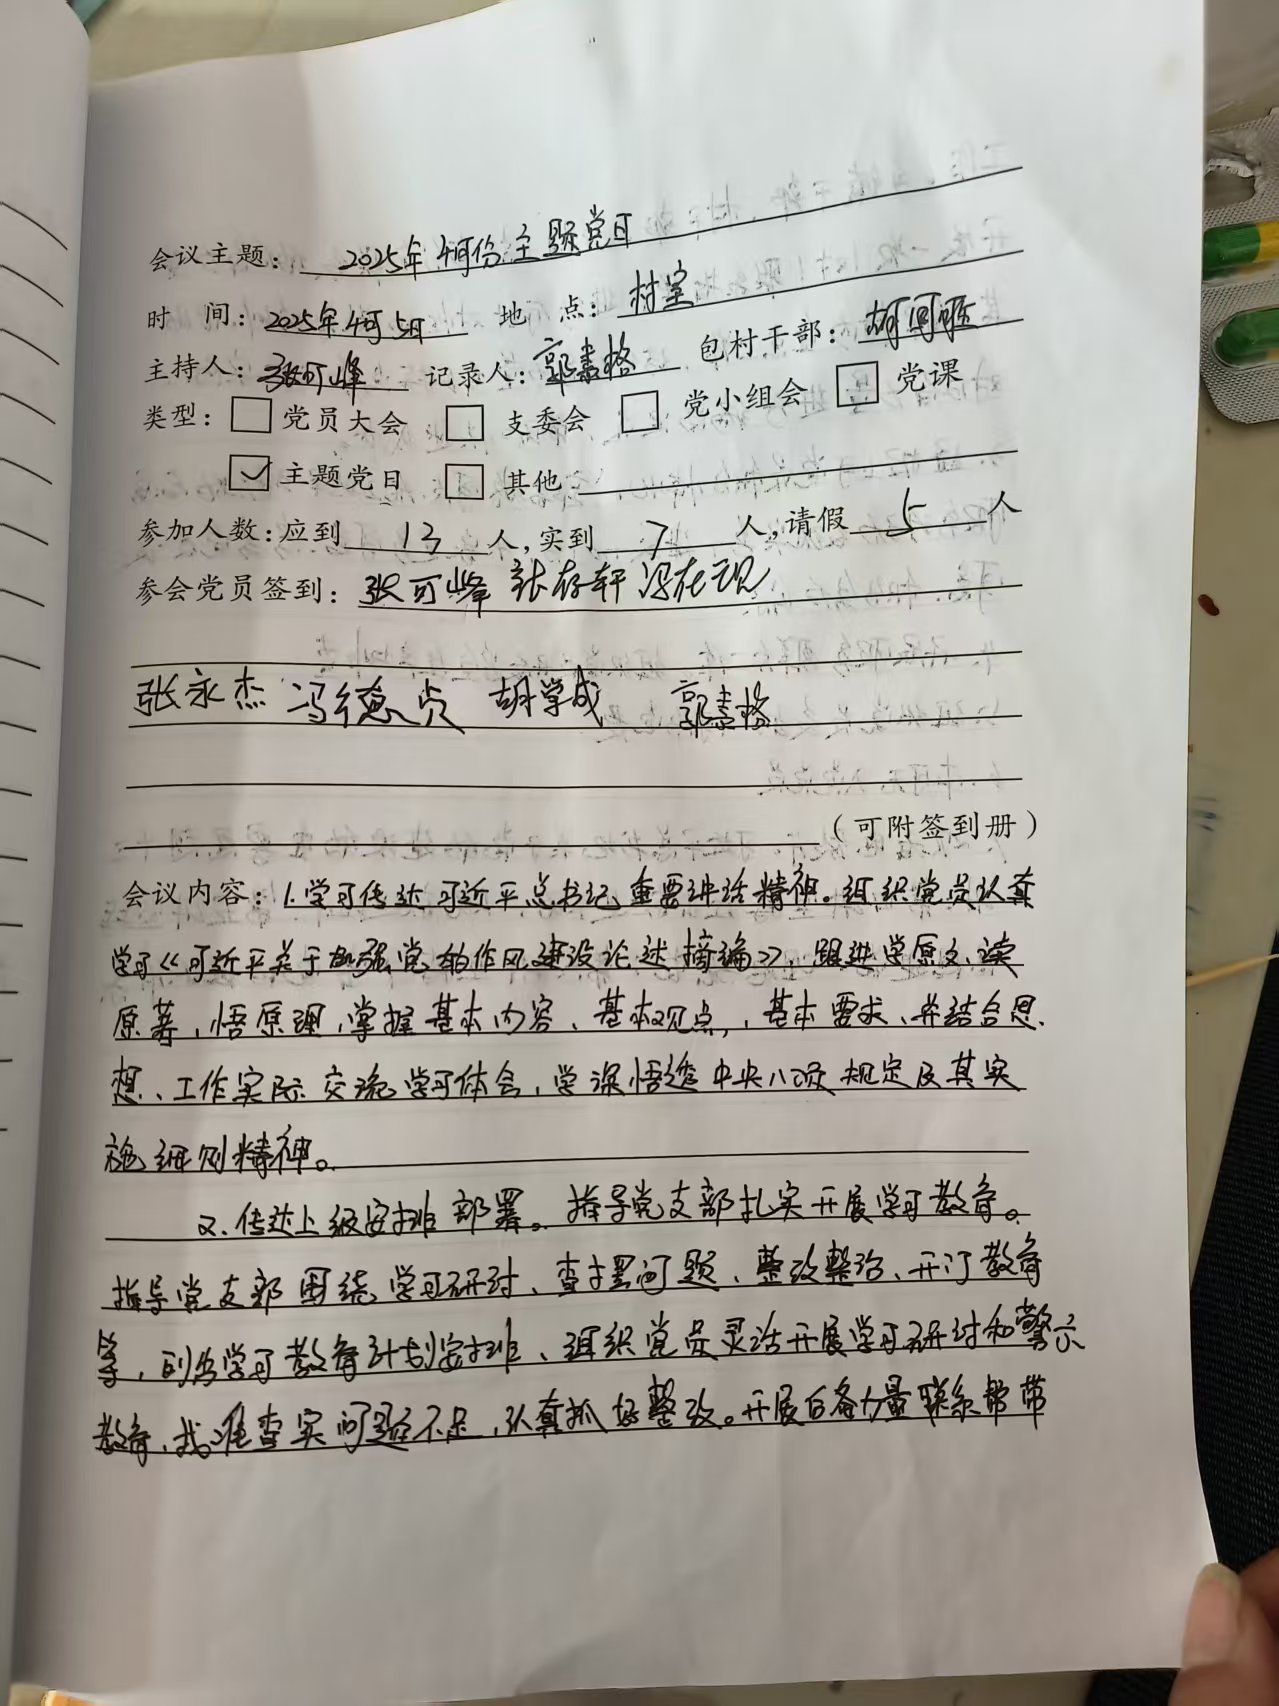 会议主题：2025年4月份主题党日
时 间：2025年4月5日 地 点：村室
主持人：张可峰 记录人：郭素格 包村干部：胡
类型：□党员大会 □支委会 □党小组会 □党课
☑主题党日 □其他
参加人数：应到 13 人，实到 7 人，请假 5 人
参会党员签到：张可峰 张存轩 冯在现
张永杰 冯德贞 胡学成 郭素格
（可附签到册）
会议内容：1.学习传达习近平总书记重要讲话精神。组织党员认真
学习《习近平关于加强党的作风建设论述摘编》，跟进学原文、读
原著，悟原理，掌握基本内容、基本观点，基本要求、并结合思
想、工作实际 交流学习体会，学深悟透中央八项规定及其实
施细则精神。
2.传达上级安排部署。指导党支部扎实开展学习教育。
指导党支部围绕学习研讨、查摆问题、整改整治、开门教育
等，列为学习教育计划安排、组织党员灵活开展学习研讨和警示
教育，找准查实问题不足，认真抓好整改。开展后备力量联系帮带